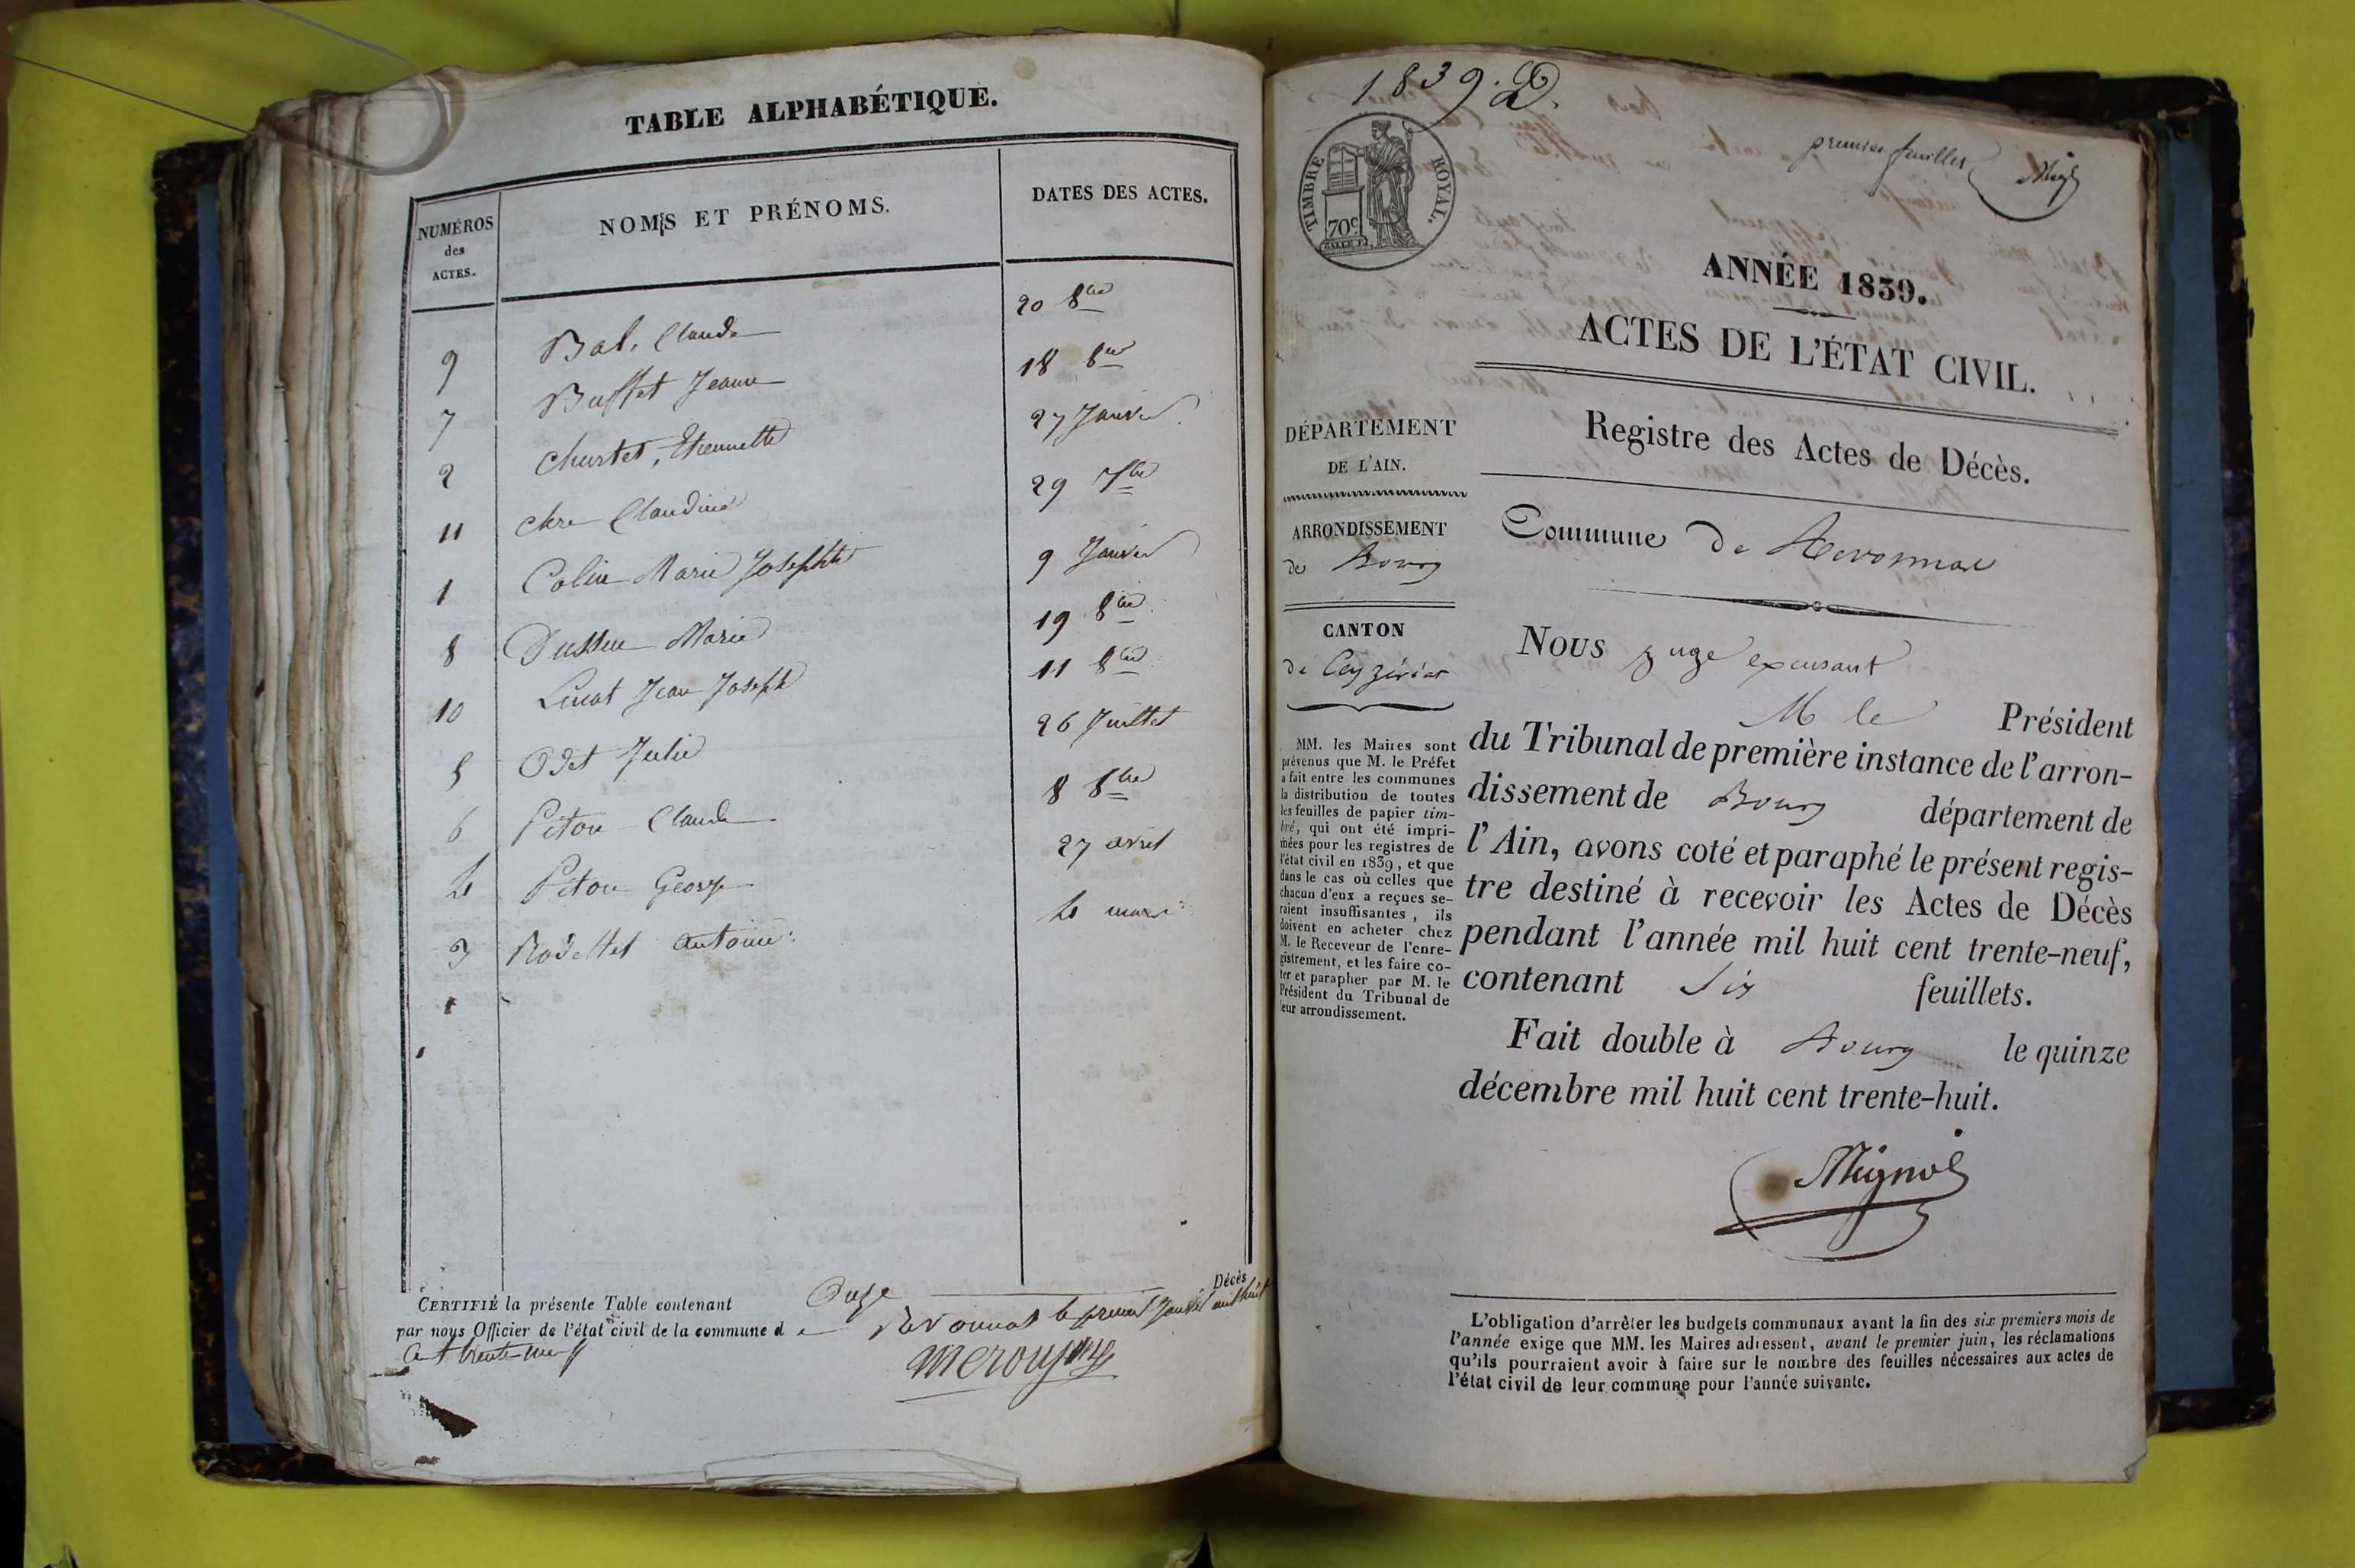 TABLE ALPHABÉTIQUE.
NUMÉROS des ACTES.
NOMS ET PRÉNOMS.
DATES DES ACTES.
9 Bal, Claude 20 8bre
7 Buffet Jeanne 18 8bre
2 Churlet, Etiennette 27 Janvier
11 Claudine 29 7bre
1 Colin Marie Josephte 9 Janvier
8 Marie 19 8bre
10 Jean Joseph 11 8bre
5 Odet Julie 26 Juillet
6 Piton Claude 8 8bre
4 Piton George 27 avril
3 Rodettet antoine 4 mars
CERTIFIÉ la présente Table contenant Onze Décès
par nous Officier de l'état civil de la commune de Revonnas le premier Janvier mil huit
Cent trente-neuf
1839. D.
premier feuillet
TIMBRE ROYAL.
70c
ANNÉE 1839.
ACTES DE L'ÉTAT CIVIL.
Registre des Actes de Décès.
DÉPARTEMENT
DE L'AIN.
ARRONDISSEMENT
de Bourg
CANTON
de Ceyzériat
MM. les Maires sont
prévenus que M. le Préfet
a fait entre les communes
la distribution de toutes
les feuilles de papier tim-
bré, qui ont été impri-
mées pour les registres de
l'état civil en 1839, et que
dans le cas où celles que
chacun d'eux a reçues se-
raient insuffisantes, ils
doivent en acheter chez
M. le Receveur de l'enre-
gistrement, et les faire co-
ter et parapher par M. le
Président du Tribunal de
leur arrondissement.
Commune de Revonnas
Nous juge excusant
M le Président
du Tribunal de première instance de l'arron-
dissement de Bourg département de
l'Ain, avons coté et paraphé le présent regis-
tre destiné à recevoir les Actes de Décès
pendant l'année mil huit cent trente-neuf,
contenant Six feuillets.
Fait double à Bourg le quinze
décembre mil huit cent trente-huit.
Mignot
L'obligation d'arrêter les budgets communaux avant la fin des six premiers mois de
l'année exige que MM. les Maires adressent, avant le premier juin, les réclamations
qu'ils pourraient avoir à faire sur le nombre des feuilles nécessaires aux actes de
l'état civil de leur commune pour l'année suivante.